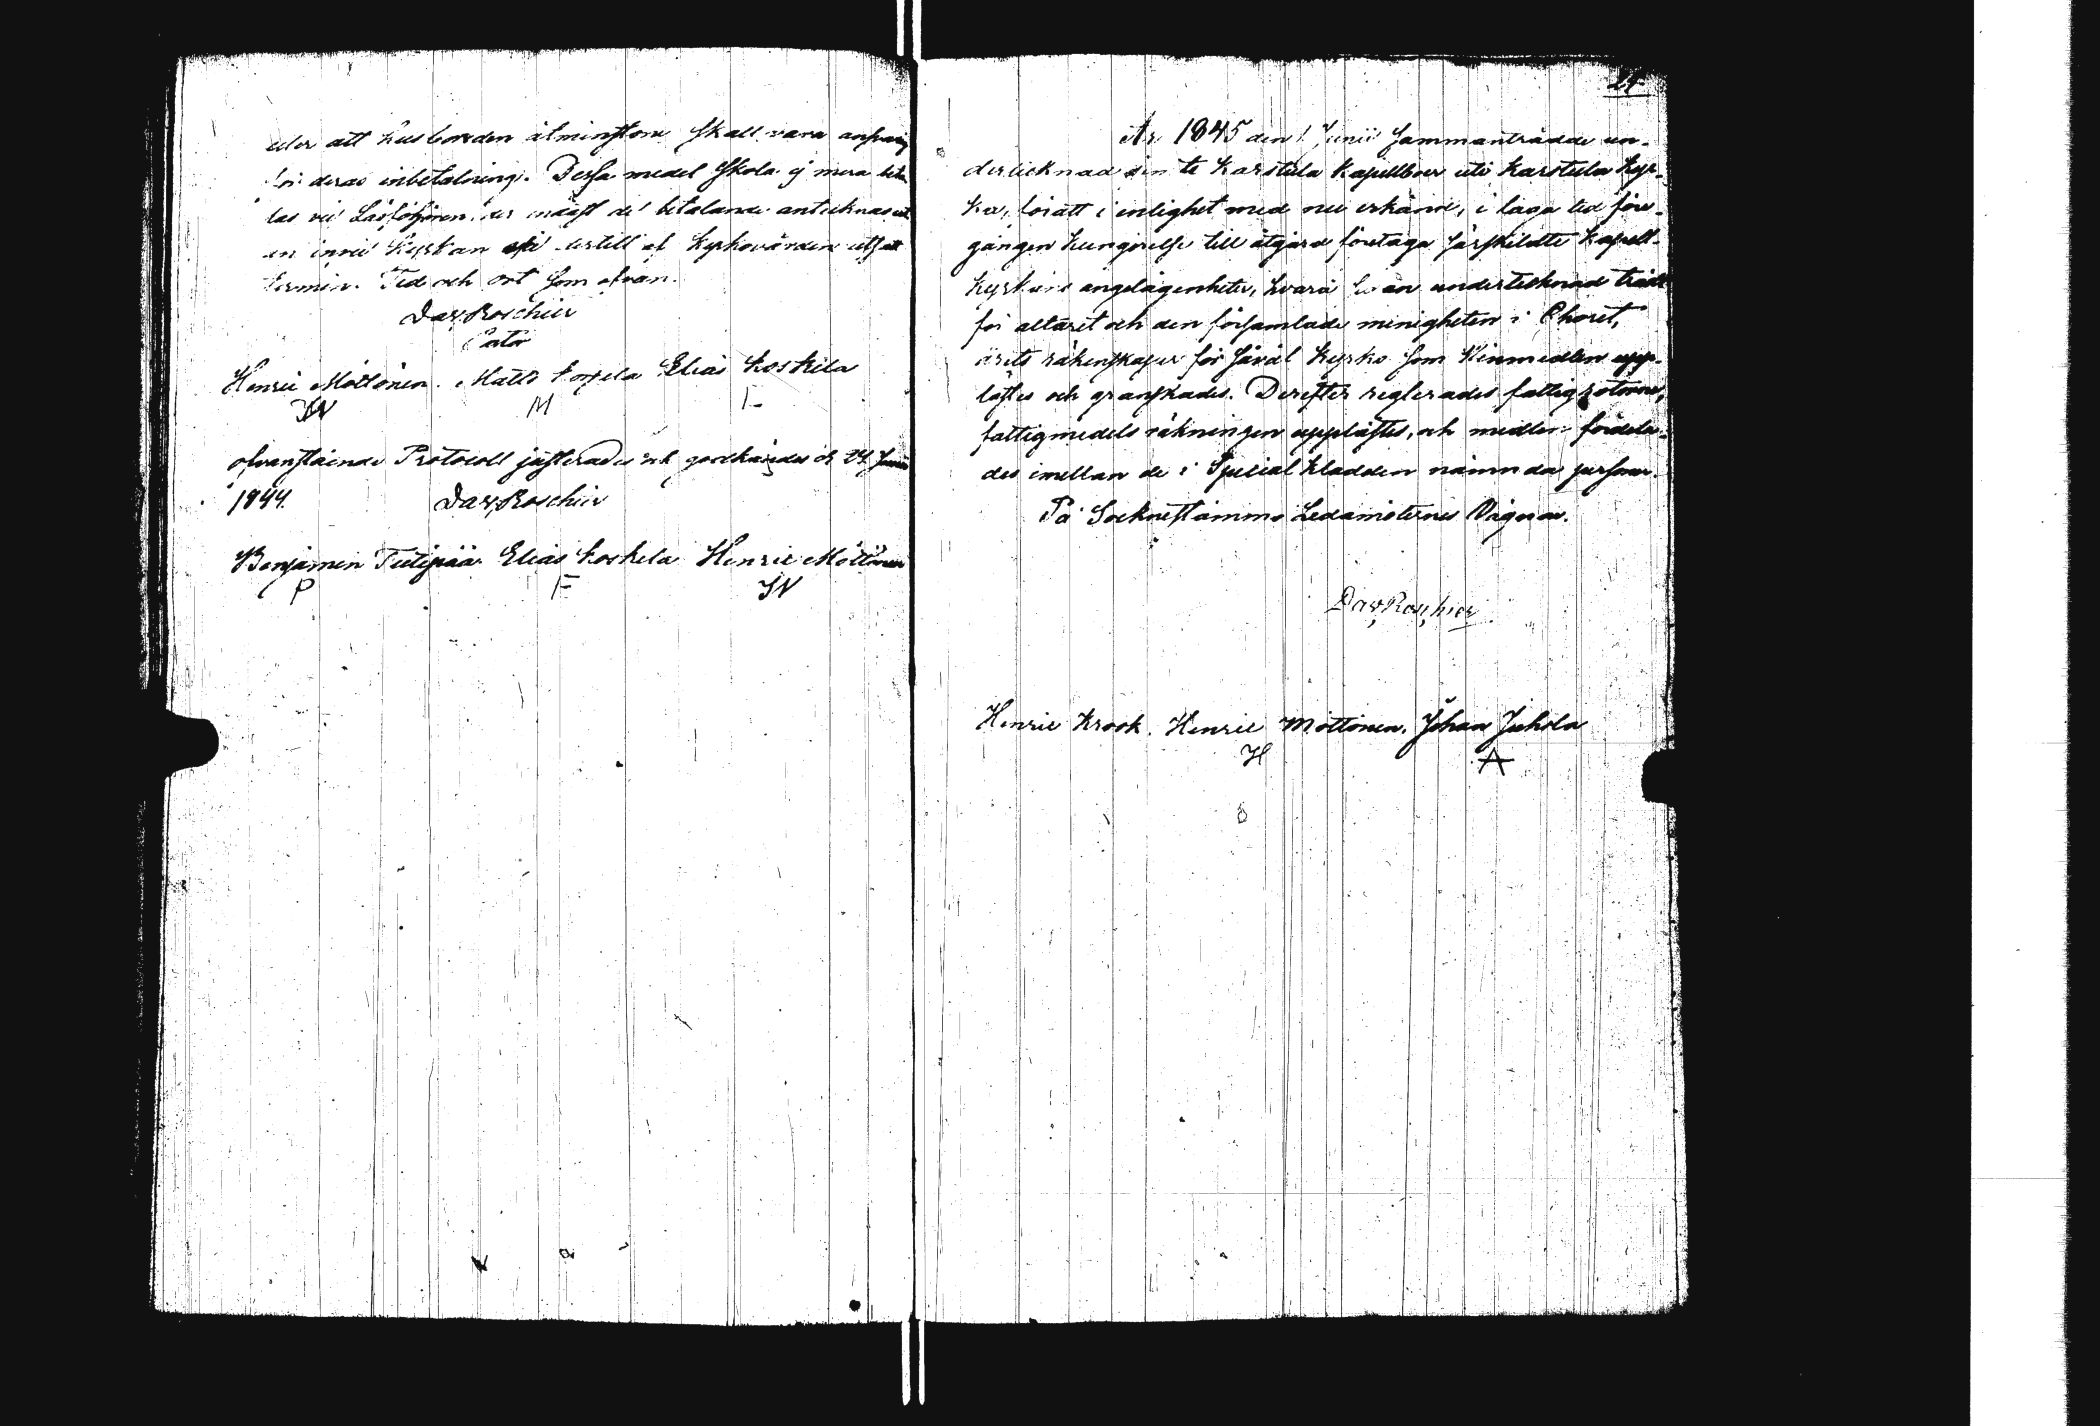 eller att husbonden åtminstone skall vara ansvarig
för deras inbetaling. Dessa medel skola ej mera beta
las vid Läsförhören
inne i Kyrkan dertill af Kyrkovärden utsatt
termin. Tid och ort som ofvan.
Dav. Roschier
Henric Möttönen. Matts Elias Koskela
IN M E
ofvanstående Protocoll justerades och godkändes d. 24 Junii
1844. Dav. Roschier
Benjamin Tiitipää Elias Koskela Henric Möttönen
P E IN
24
År 1845 den 1 Junii sammanträdde un-
dertecknad Karstula Kapellboer uti Karstula Kyr-
ka, för att i enlighet med nu erkänd, i laga tid före-
gången kungörelse till åtgärd företaga särskildte Kapell-
kyrkans angelägenheter, hvarå undertecknad trädt
för altaret och den församlade menigheten i Choret,
årets räkenskaper för såväl Kyrko som Vinmedlen upp-
lästes och granskades. Derefter reglerades fattigrotarne,
fattigmedels räkningen upplästes, och medlen fördela-
des imellan de i Special kladden nämnda personer.
På Sockenstämmo Ledamöternes Vägnar.
Dav. Roschier
Henric Krook. Henric Möttönen. Johan Juhola
H A